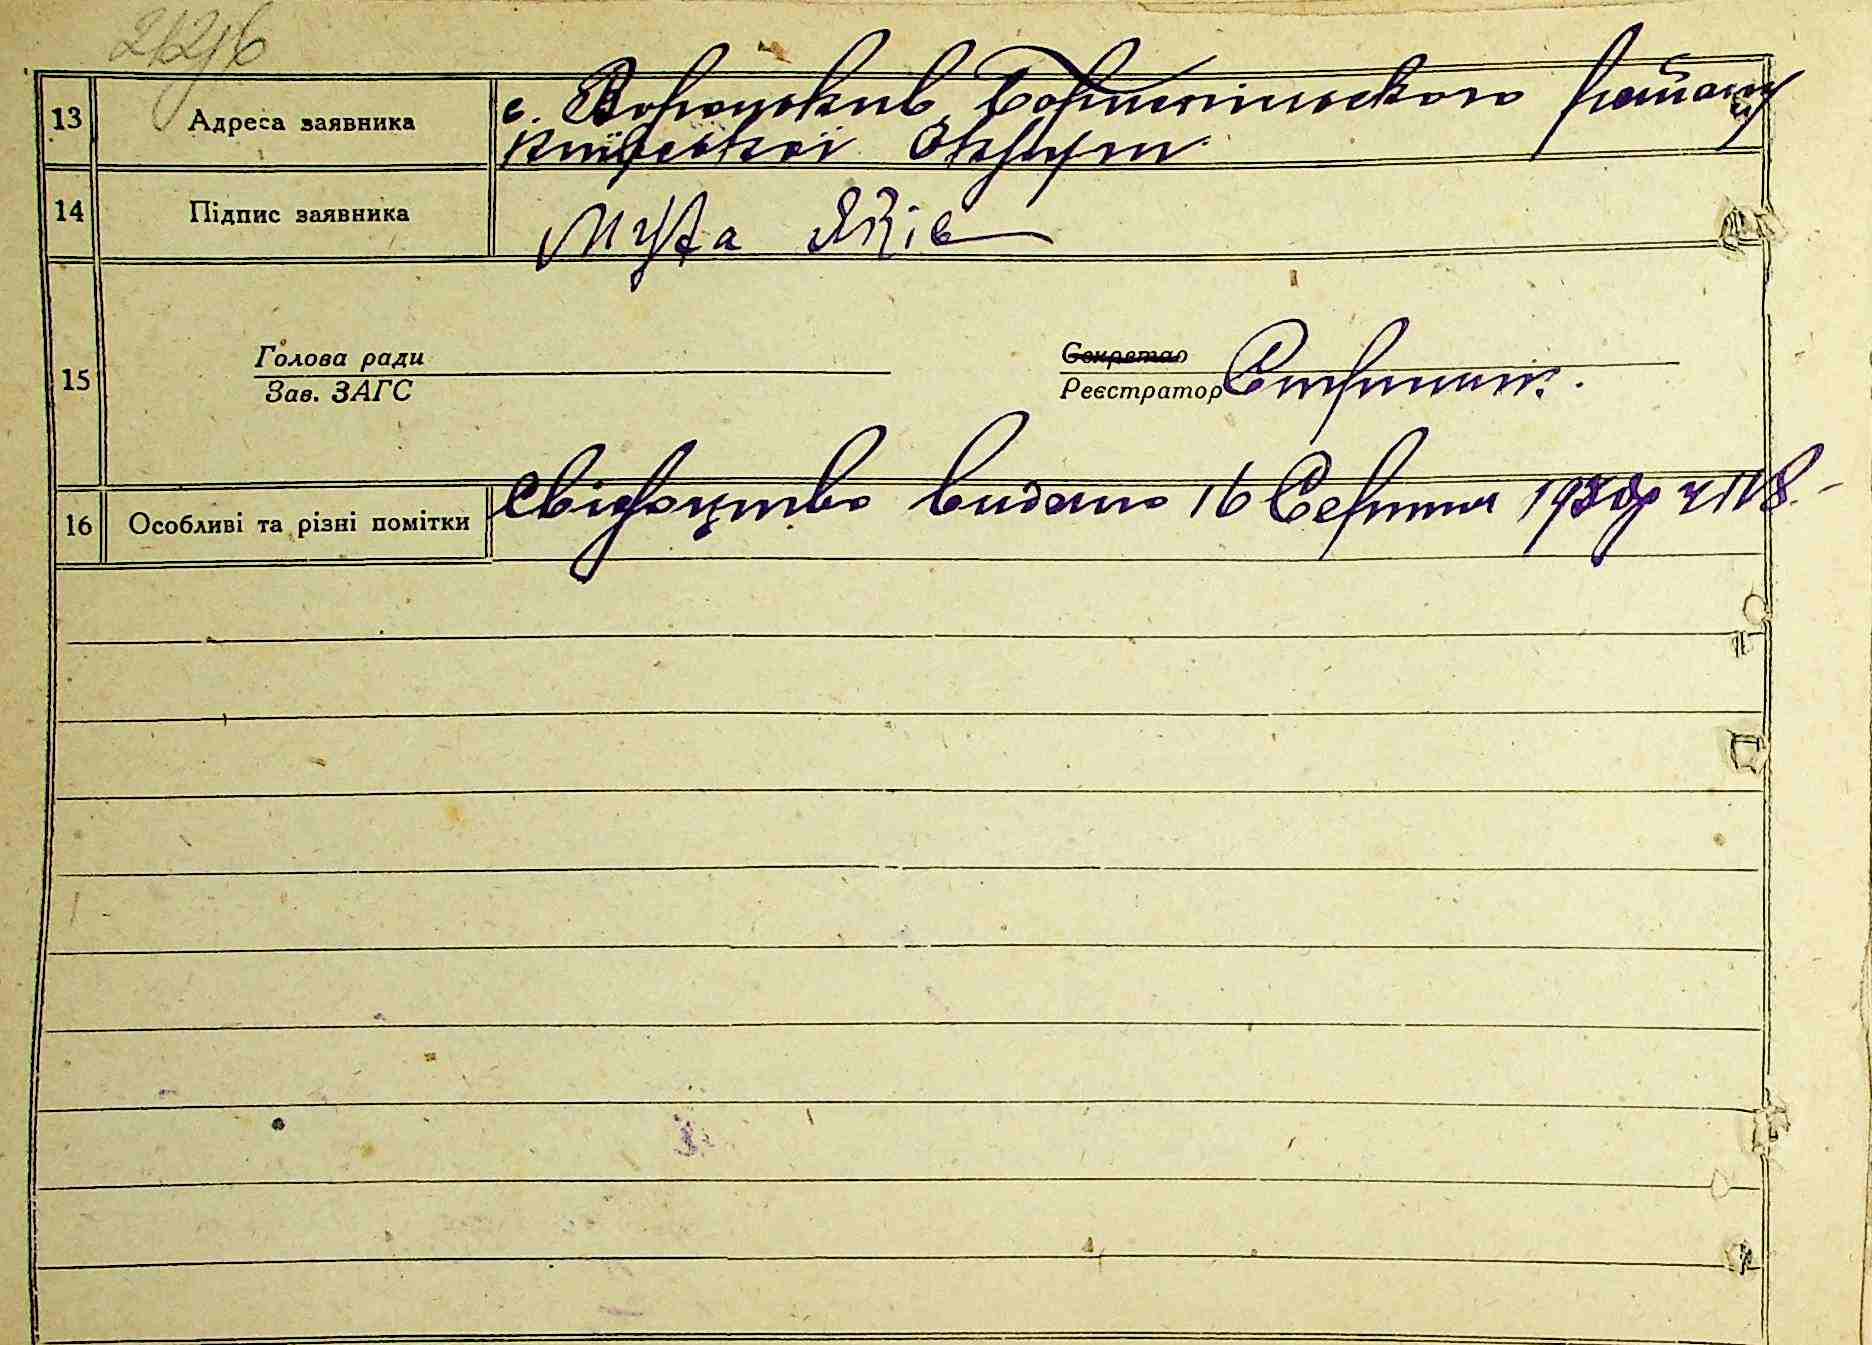 13 Адреса заявника с. Вороньків, Бориспільського району
Київської Округи
14 Підпис заявника Муха Яків
15 Голова ради
Зав. ЗАГС
Секретар
Реєстратор
16 Особливі та різні помітки Свідоцтво видано 16 Серпня 1930р